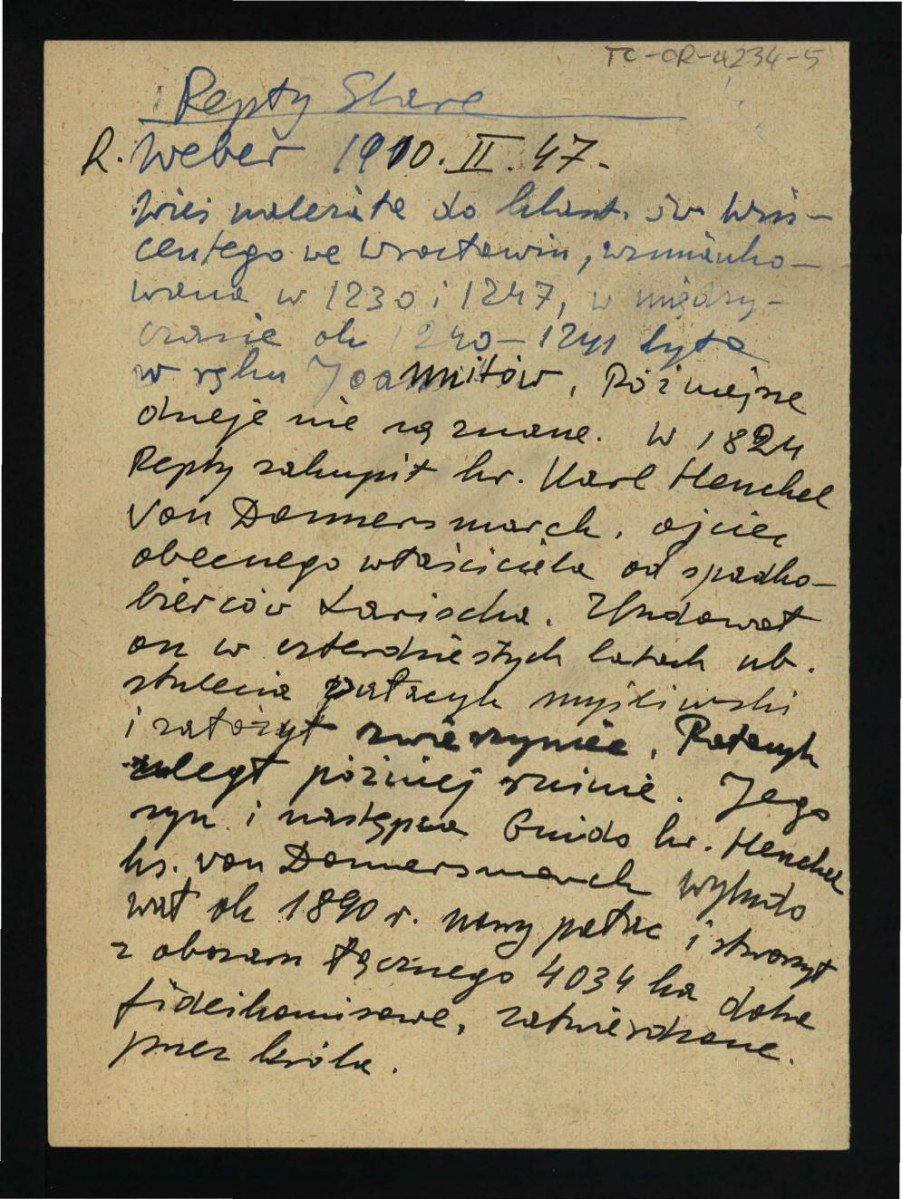 TC-OR-4234-5
Repty Stare
R. Weber 1910. II. 47.
Wieś należała do klaszt. św Win-
centego we Wrocławiu, wzmianko-
wana w 1230 i 1247, w między-
czasie ok 1240-1241 była
w ręku Joannitów. Późniejsze
dzieje nie są znane. W 1824
Repty zakupił hr. Karl Henckel
von Donnersmarck, ojciec
obecnego właściciela od spadko-
bierców Larischa. Zbudował
on w czterdziestych latach ub.
stulecia pałacyk myśliwski
i założył zwierzyniec. Pałacyk
uległ później ruinie. Jego
syn i następca Guido hr. Henckel
ks. von Donnersmarck wybudo
wał ok 1890 r. nowy pałac i stworzył
z obszaru łącznego 4034 ha dobra
fideikomisowe, zatwierdzone
przez króla.